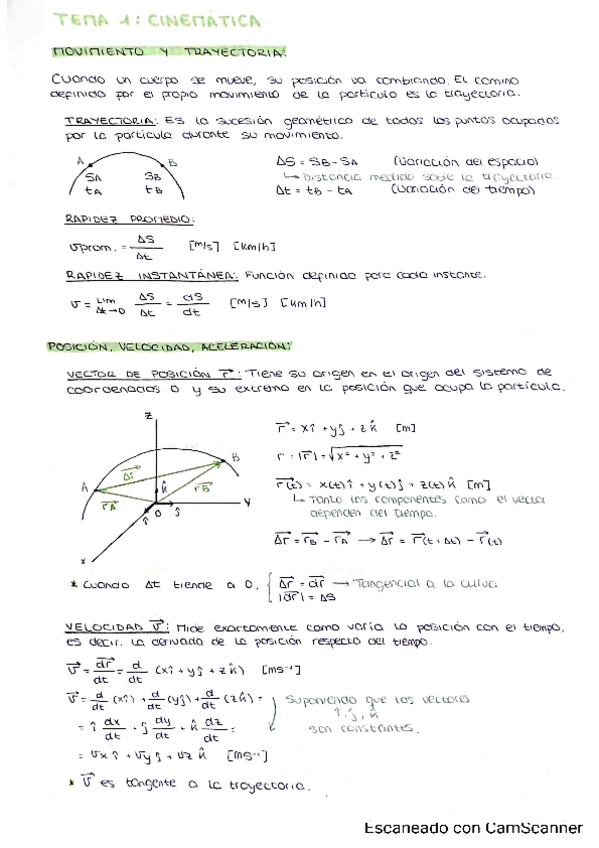 TEMA 1: CINEMÁTICA
MOVIMIENTO Y TRAYECTORIA:
Cuando un cuerpo se mueve, su posición va cambiando. El camino
definido por el propio movimiento de la partícula es la trayectoria.
TRAYECTORIA: Es la sucesión geométrica de todos los puntos ocupados
por la partícula durante su movimiento.
A B
SA SB
tA tB
ΔS = SB - SA (Variación del espacio)
↳ Distancia medida sobre la trayectoria.
Δt = tB - tA (Variación del tiempo)
RAPIDEZ PROMEDIO:
vprom. = ΔS/Δt [m/s] [km/h]
RAPIDEZ INSTANTÁNEA: Función definida para cada instante.
v = Lim Δt→0 ΔS/Δt = dS/dt [m/s] [km/h]
POSICIÓN, VELOCIDAD, ACELERACIÓN:
VECTOR DE POSICIÓN r⃗: Tiene su origen en el origen del sistema de
coordenadas O y su extremo en la posición que ocupa la partícula.
z
A B
Δr⃗
r⃗A r⃗B
k̂
î O ĵ y
x
r⃗ = xî + yĵ + zk̂ [m]
r = |r⃗| = √x² + y² + z²
r⃗(t) = x(t)î + y(t)ĵ + z(t)k̂ [m]
↳ Tanto las componentes como el vector
dependen del tiempo.
Δr⃗ = r⃗B - r⃗A → Δr⃗ = r⃗(t + Δt) - r⃗(t)
* Cuando Δt tiende a 0, { Δr⃗ = dr⃗ → Tangencial a la curva
|dr⃗| = ΔS
VELOCIDAD v⃗: Mide exactamente como varía la posición con el tiempo,
es decir, la derivada de la posición respecto del tiempo.
v⃗ = dr⃗/dt = d/dt (xî + yĵ + zk̂) [ms⁻¹]
v⃗ = d/dt (xî) + d/dt (yĵ) + d/dt (zk̂) = Suponiendo que los vectores
î, ĵ, k̂
= î dx/dt + ĵ dy/dt + k̂ dz/dt = son constantes.
= vx î + vy ĵ + vz k̂ [ms⁻¹]
* v⃗ es tangente a la trayectoria.
Escaneado con CamScanner